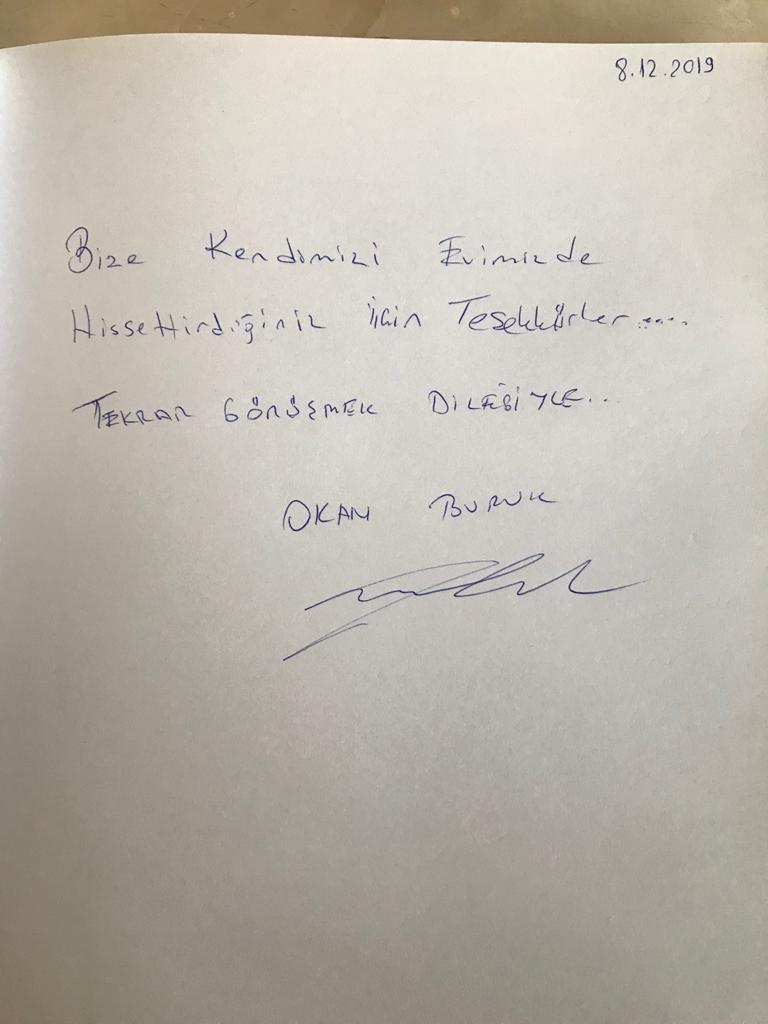 8.12.2019
Bize Kendimizi Evimizde
Hissettirdiğiniz için Teşekkürler.....
TEKRAR GÖRÜŞMEK DİLEĞİYLE...
OKAN BURUK